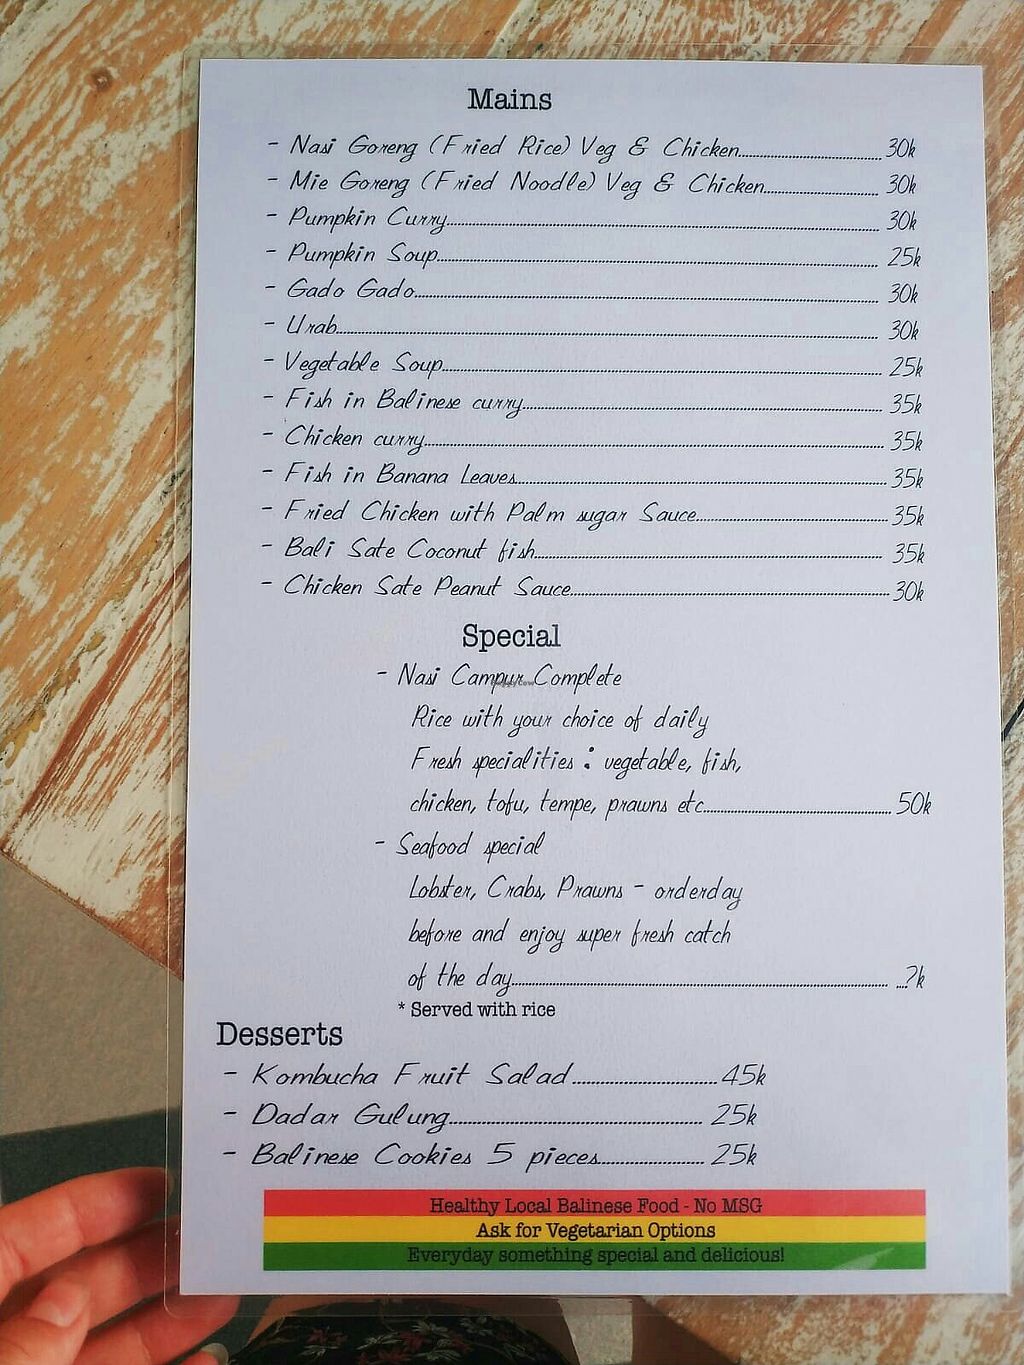 Mains
- Nasi Goreng (Fried Rice) Veg & Chicken 30k
- Mie Goreng (Fried Noodle) Veg & Chicken 30k
- Pumpkin Curry 30k
- Pumpkin Soup 25k
- Gado Gado 30k
- Urab 30k
- Vegetable Soup 25k
- Fish in Balinese curry 35k
- Chicken curry 35k
- Fish in Banana Leaves 35k
- Fried Chicken with Palm sugar Sauce 35k
- Bali Sate Coconut fish 35k
- Chicken Sate Peanut Sauce 30k
Special
- Nasi Campur Complete
Rice with your choice of daily
Fresh specialities : vegetable, fish,
chicken, tofu, tempe, prawns etc 50k
- Seafood special
Lobster, Crabs, Prawns - orderday
before and enjoy super fresh catch
of the day ...?k
* Served with rice
Desserts
- Kombucha Fruit Salad 45k
- Dadar Gulung 25k
- Balinese Cookies 5 pieces 25k
Healthy Local Balinese Food - No MSG
Ask for Vegetarian Options
Everyday something special and delicious!